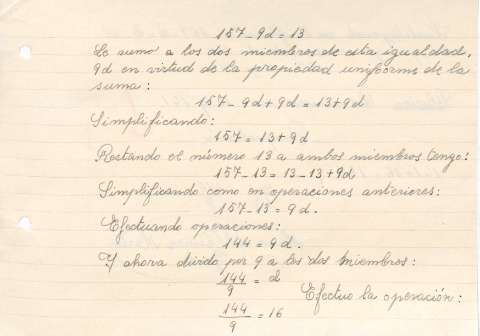 157 - 9d = 13
Le sumo a los dos miembros de esta igualdad,
9d en virtud de la propiedad uniforme de la
suma:
157 - 9d + 9d = 13 + 9d
Simplificando:
157 = 13 + 9d
Restando el número 13 a ambos miembros tengo:
157 - 13 = 13 - 13 + 9d
Simplificando como en operaciones anteriores:
157 - 13 = 9d.
Efectuando operaciones:
144 = 9d.
Y ahora divido por 9 a los dos miembros:
144/9 = d Efectuo la operación:
144/9 = 16